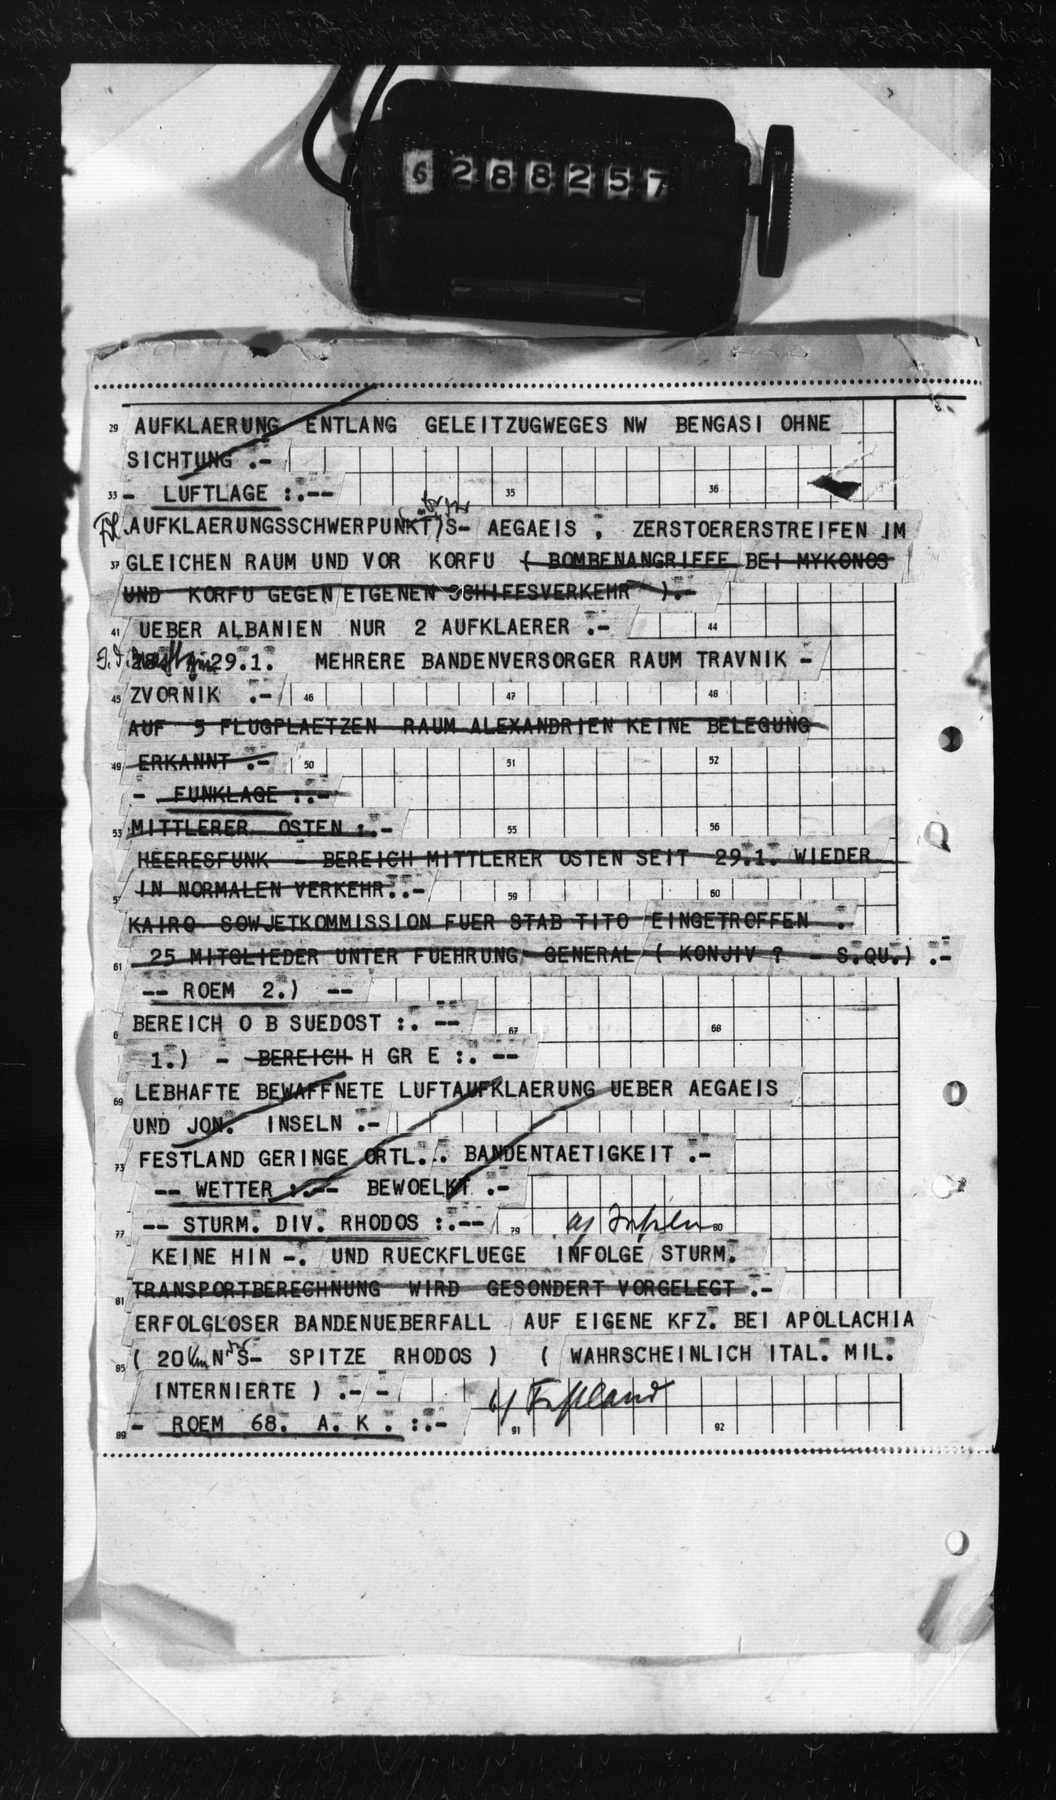 6288257
29 AUFKLAERUNG ENTLANG GELEITZUGWEGES NW BENGASI OHNE
SICHTUNG .-
33 - LUFTLAGE :.-- 35 36
AUFKLAERUNGSSCHWERPUNKT S- AEGAEIS , ZERSTOERERSTREIFEN IM
37 GLEICHEN RAUM UND VOR KORFU ( BOMBENANGRIFFE BEI MYKONOS
UND KORFU GEGEN EIGENEN SCHIFFSVERKEHR ).-
41 UEBER ALBANIEN NUR 2 AUFKLAERER .- 44
29.1. MEHRERE BANDENVERSORGER RAUM TRAVNIK -
45 ZVORNIK .- 46 47 48
AUF 5 FLUGPLAETZEN RAUM ALEXANDRIEN KEINE BELEGUNG
49 ERKANNT .- 50 51 52
- FUNKLAGE :.-
53 MITTLERER OSTEN :.- 55 56
HEERESFUNK - BEREICH MITTLERER OSTEN SEIT 29.1. WIEDER
IN NORMALEN VERKEHR..- 59 60
KAIRO SOWJETKOMMISSION FUER STAB TITO EINGETROFFEN .
61 25 MITGLIEDER UNTER FUEHRUNG GENERAL ( KONJIV ? - S.QU.) .-
-- ROEM 2.) --
BEREICH O B SUEDOST :. -- 67 68
1.) - BEREICH H GR E :. --
69 LEBHAFTE BEWAFFNETE LUFTAUFKLAERUNG UEBER AEGAEIS
UND JON. INSELN .-
73 FESTLAND GERINGE ORTL... BANDENTAETIGKEIT .-
-- WETTER :.-- BEWOELKT .-
77 -- STURM. DIV. RHODOS :.-- 79 a) Inseln 80
KEINE HIN -. UND RUECKFLUEGE INFOLGE STURM.
81 TRANSPORTBERECHNUNG WIRD GESONDERT VORGELEGT .-
ERFOLGLOSER BANDENUEBERFALL AUF EIGENE KFZ. BEI APOLLACHIA
85 ( 20 km N S- SPITZE RHODOS ) ( WAHRSCHEINLICH ITAL. MIL.
INTERNIERTE ) .- - b) Festland
89 - ROEM 68. A. K . :.- 91 92